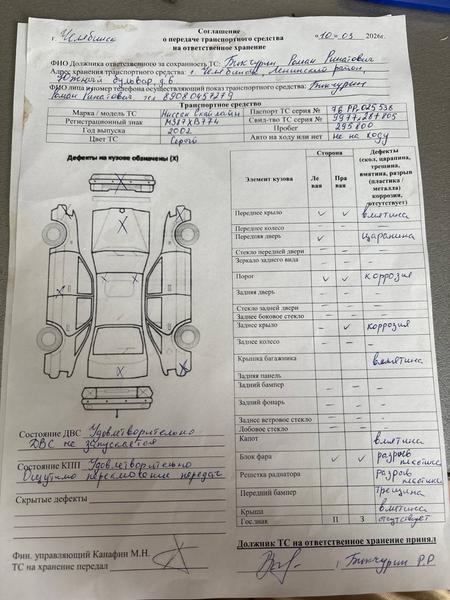 Соглашение
г. Челябинск о передаче транспортного средства «10» 03 2026г.
на ответственное хранение
ФИО Должника ответственного за сохранность ТС: Бикчурин, Роман Ринатович
Адрес хранения транспортного средства: г. Челябинск, Ленинский район,
Южный бульвар, д.6
ФИО лица и номер телефона осуществляющий показ транспортного средства: Бикчурин
Роман Ринатович, тел 89080458279
Транспортное средство
Марка / модель ТС Ниссен Скайлайн Паспорт ТС серия № 78 РР 025536
Регистрационный знак М317ХВ774 Свид-тво ТС серия № 9977 287805
Год выпуска 2002 Пробег 295800
Цвет ТС Серый Авто на ходу или нет не на ходу
Дефекты на кузове обозначены (X)
Элемент кузова Сторона Дефекты
Ле вая Пра вая (скол, царапина, трещина, вмятина, разрыв (пластика / металла) коррозия, отсутствует)
Переднее крыло ✓ ✓ вмятина
Переднее колесо – – –
Передняя дверь ✓ царапина
Стекло передней двери – – –
Зеркало заднего вида – – –
Порог ✓ ✓ коррозия
Задняя дверь – – –
Стекло задней двери – – –
Заднее боковое стекло – – –
Заднее крыло – ✓ коррозия
Заднее колесо – – –
Крышка багажника вмятина
Задняя панель
Задний бампер – – –
Задний фонарь – – –
Заднее ветровое стекло – – –
Лобовое стекло – – –
Капот вмятина
Блок фара ✓ ✓ разрыв пластика
Решетка радиатора разрыв пластика
Передний бампер трещина
Крыша вмятина
Гос.знак П З отсутствует
Состояние ДВС Удовлетворительно
ДВС не запускается
Состояние КПП Удовлетворительно
Скрытые дефекты
Фин. управляющий Канафин М.Н.
ТС на хранение передал
Должник ТС на ответственное хранение принял
Бикчурин Р.Р